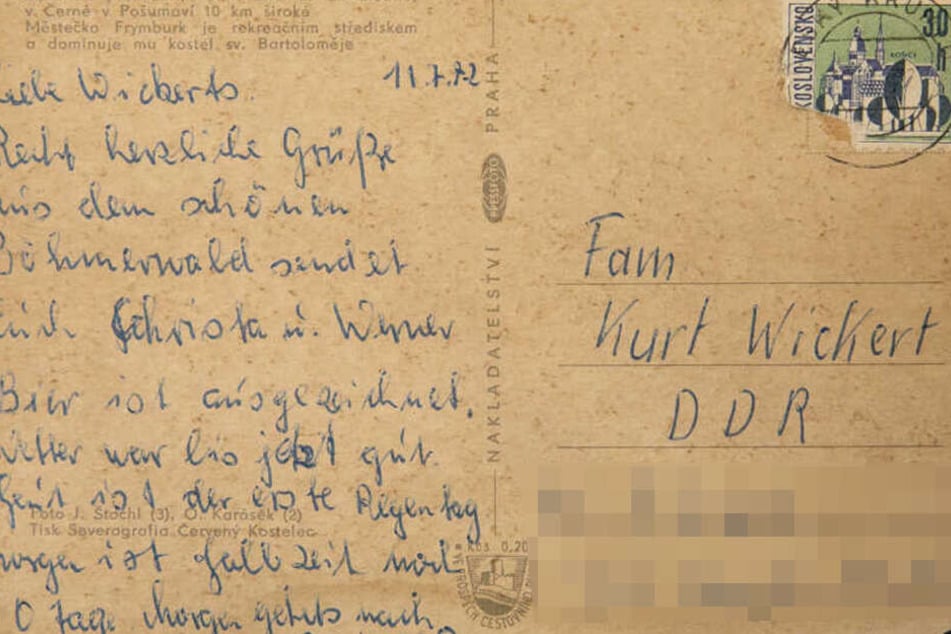 v. Černé v Pošumaví 10 km široké
Městečko Frymburk je rekreačním střediskem
a dominuje mu kostel sv. Bartoloměje
11.7.72
Liebe Wickerts.
Recht herzliche Grüße
aus dem schönen
Böhmerwald sendet
Euch Christa u. Werner
Bier ist ausgezeichnet,
Wetter war bis jetzt gut.
Heut ist der erste Regentag
Foto J. Štochl (3), O. Karásek (2)
Tisk Severografia Červený Kostelec
morgen ist
0 Tage Morgen gehts nach
NAKLADATELSTVÍ PRESSFOTO PRAHA
KOSLOVENSKO
KOŠICE
Fam
Kurt Wickert
DDR
Kčs 0,20